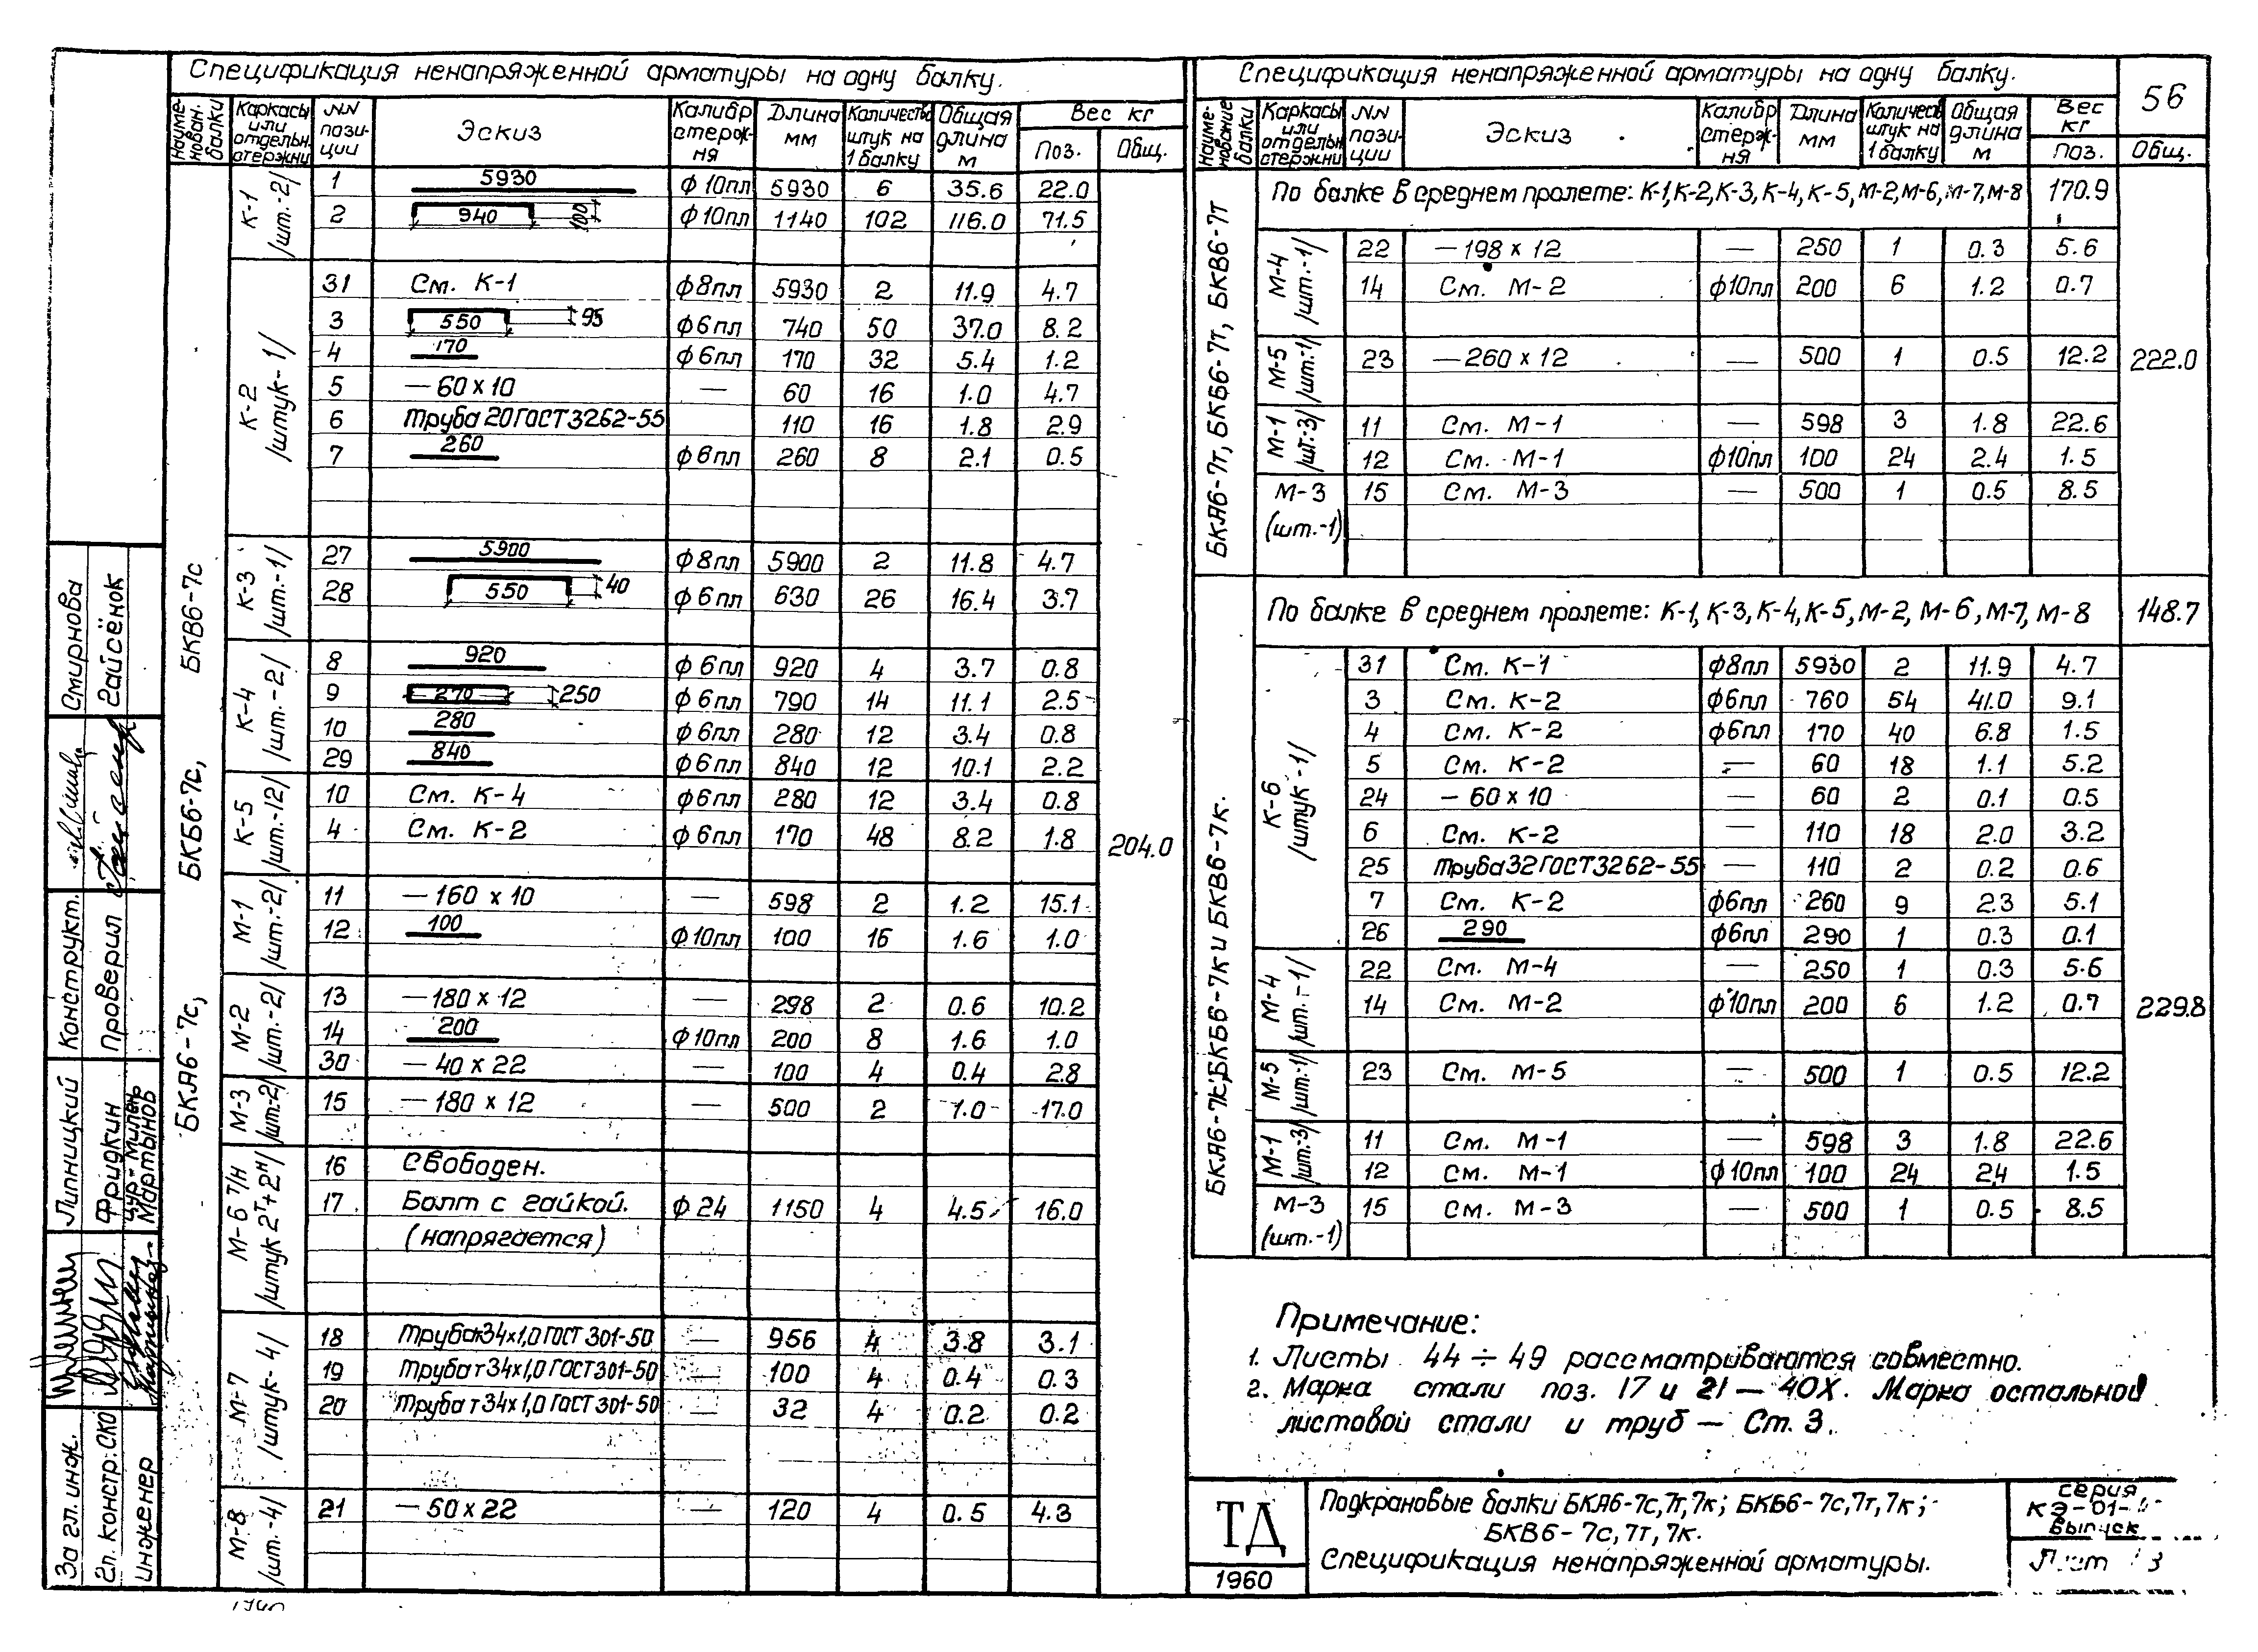 Спецификация ненапряженной арматуры на одну балку.
Наиме- нован. балки | Каркасы или отдельн. стержни | NN пози- ции | Эскиз | Калибр стерж- ня | Длина мм | Количество штук на 1 балку | Общая длина м | Вес кг Поз. | Общ.
БКА6-7с, БКБ6-7с, БКВ6-7с
204.0
К-1 /шт.-2/
1 5930 ф10пл 5930 6 35.6 22.0
2 940 100 ф10пл 1140 102 116.0 71.5
К-2 /штук-1/
31 См. К-1 ф8пл 5930 2 11.9 4.7
3 550 95 ф6пл 740 50 37.0 8.2
4 170 ф6пл 170 32 5.4 1.2
5 —60х10 — 60 16 1.0 4.7
6 Труба 20 ГОСТ 3262-55 110 16 1.8 2.9
7 260 ф6пл 260 8 2.1 0.5
К-3 /шт.-1/
27 5900 ф8пл 5900 2 11.8 4.7
28 550 40 ф6пл 630 26 16.4 3.7
К-4 /шт.-2/
8 920 ф6пл 920 4 3.7 0.8
9 270 250 ф6пл 790 14 11.1 2.5
10 280 ф6пл 280 12 3.4 0.8
29 840 ф6пл 840 12 10.1 2.2
К-5 /шт.-12/
10 См. К-4 ф6пл 280 12 3.4 0.8
4 См. К-2 ф6пл 170 48 8.2 1.8
М-1 /шт.-2/
11 —160 х 10 — 598 2 1.2 15.1
12 100 ф10пл 100 16 1.6 1.0
М-2 /шт.-2/
13 —180 х 12 — 298 2 0.6 10.2
14 200 ф10пл 200 8 1.6 1.0
30 —40 х 22 — 100 4 0.4 2.8
М-3 /шт.-2/
15 —180 х 12 — 500 2 1.0 17.0
М-6 т/н /штук 2т+2н/
16 Свободен.
17 Болт с гайкой. ф24 1150 4 4.5 16.0
(напрягается)
М-7 /штук-4/
18 Труба т34х1,0 ГОСТ 301-50 — 956 4 3.8 3.1
19 Труба т34х1,0 ГОСТ 301-50 — 100 4 0.4 0.3
20 Труба т34х1,0 ГОСТ 301-50 — 32 4 0.2 0.2
М-8 /шт.-4/
21 —50х22 — 120 4 0.5 4.3
Спецификация ненапряженной арматуры на одну балку.
56
Наиме- нование балки | Каркасы или отдельн стержни | NN пози- ции | Эскиз | Калибр стерж- ня | Длина мм | Количеств штук на 1 балку | Общая длина м | Вес кг поз. | Общ.
БКА6-7т, БКБ6-7т, БКВ6-7т
По балке в среднем пролете: К-1, К-2, К-3, К-4, К-5, М-2, М-6, М-7, М-8 170.9
222.0
М-4 /шт.-1/
22 —198 х 12 — 250 1 0.3 5.6
14 См. М-2 ф10пл 200 6 1.2 0.7
М-5 /шт.-1/
23 —260 х 12 — 500 1 0.5 12.2
М-1 /шт.-3/
11 См. М-1 — 598 3 1.8 22.6
12 См. М-1 ф10пл 100 24 2.4 1.5
М-3 (шт.-1)
15 См. М-3 — 500 1 0.5 8.5
БКА6-7к, БКБ6-7к и БКВ6-7к.
По балке в среднем пролете: К-1, К-3, К-4, К-5, М-2, М-6, М-7, М-8 148.7
229.8
К-6 /штук-1/
31 См. К-1 ф8пл 5930 2 11.9 4.7
3 См. К-2 ф6пл 760 54 41.0 9.1
4 См. К-2 ф6пл 170 40 6.8 1.5
5 См. К-2 — 60 18 1.1 5.2
24 —60х10 — 60 2 0.1 0.5
6 См. К-2 — 110 18 2.0 3.2
25 Труба 32 ГОСТ 3262-55 — 110 2 0.2 0.6
7 См. К-2 ф6пл 260 9 2.3 5.1
26 290 ф6пл 290 1 0.3 0.1
М-4 /шт.-1/
22 См. М-4 — 250 1 0.3 5.6
14 См. М-2 ф10пл 200 6 1.2 0.7
М-5 /шт.-1/
23 См. М-5 — 500 1 0.5 12.2
М-1 /шт.-3/
11 См. М-1 — 598 3 1.8 22.6
12 См. М-1 ф10пл 100 24 2,4 1.5
М-3 (шт.-1)
15 См. М-3 — 500 1 0.5 8.5
Примечание:
1. Листы 44 ÷ 49 рассматриваются совместно.
2. Марка стали поз. 17 и 21 — 40Х. Марка остальной
листовой стали и труб — Ст. 3.
ТД
1960
Подкрановые балки БКА6-7с,7т,7к; БКБ6-7с,7т,7к;
БКВ6-7с,7т,7к.
Спецификация ненапряженной арматуры.
серия
КЭ-01-
Выпуск
Лист
Смирнова
Гайсёнок
Конструкт.
Проверил
Липницкий
Фридкин
Мартынов
За гл. инж.
Гл. констр. СКО
инженер